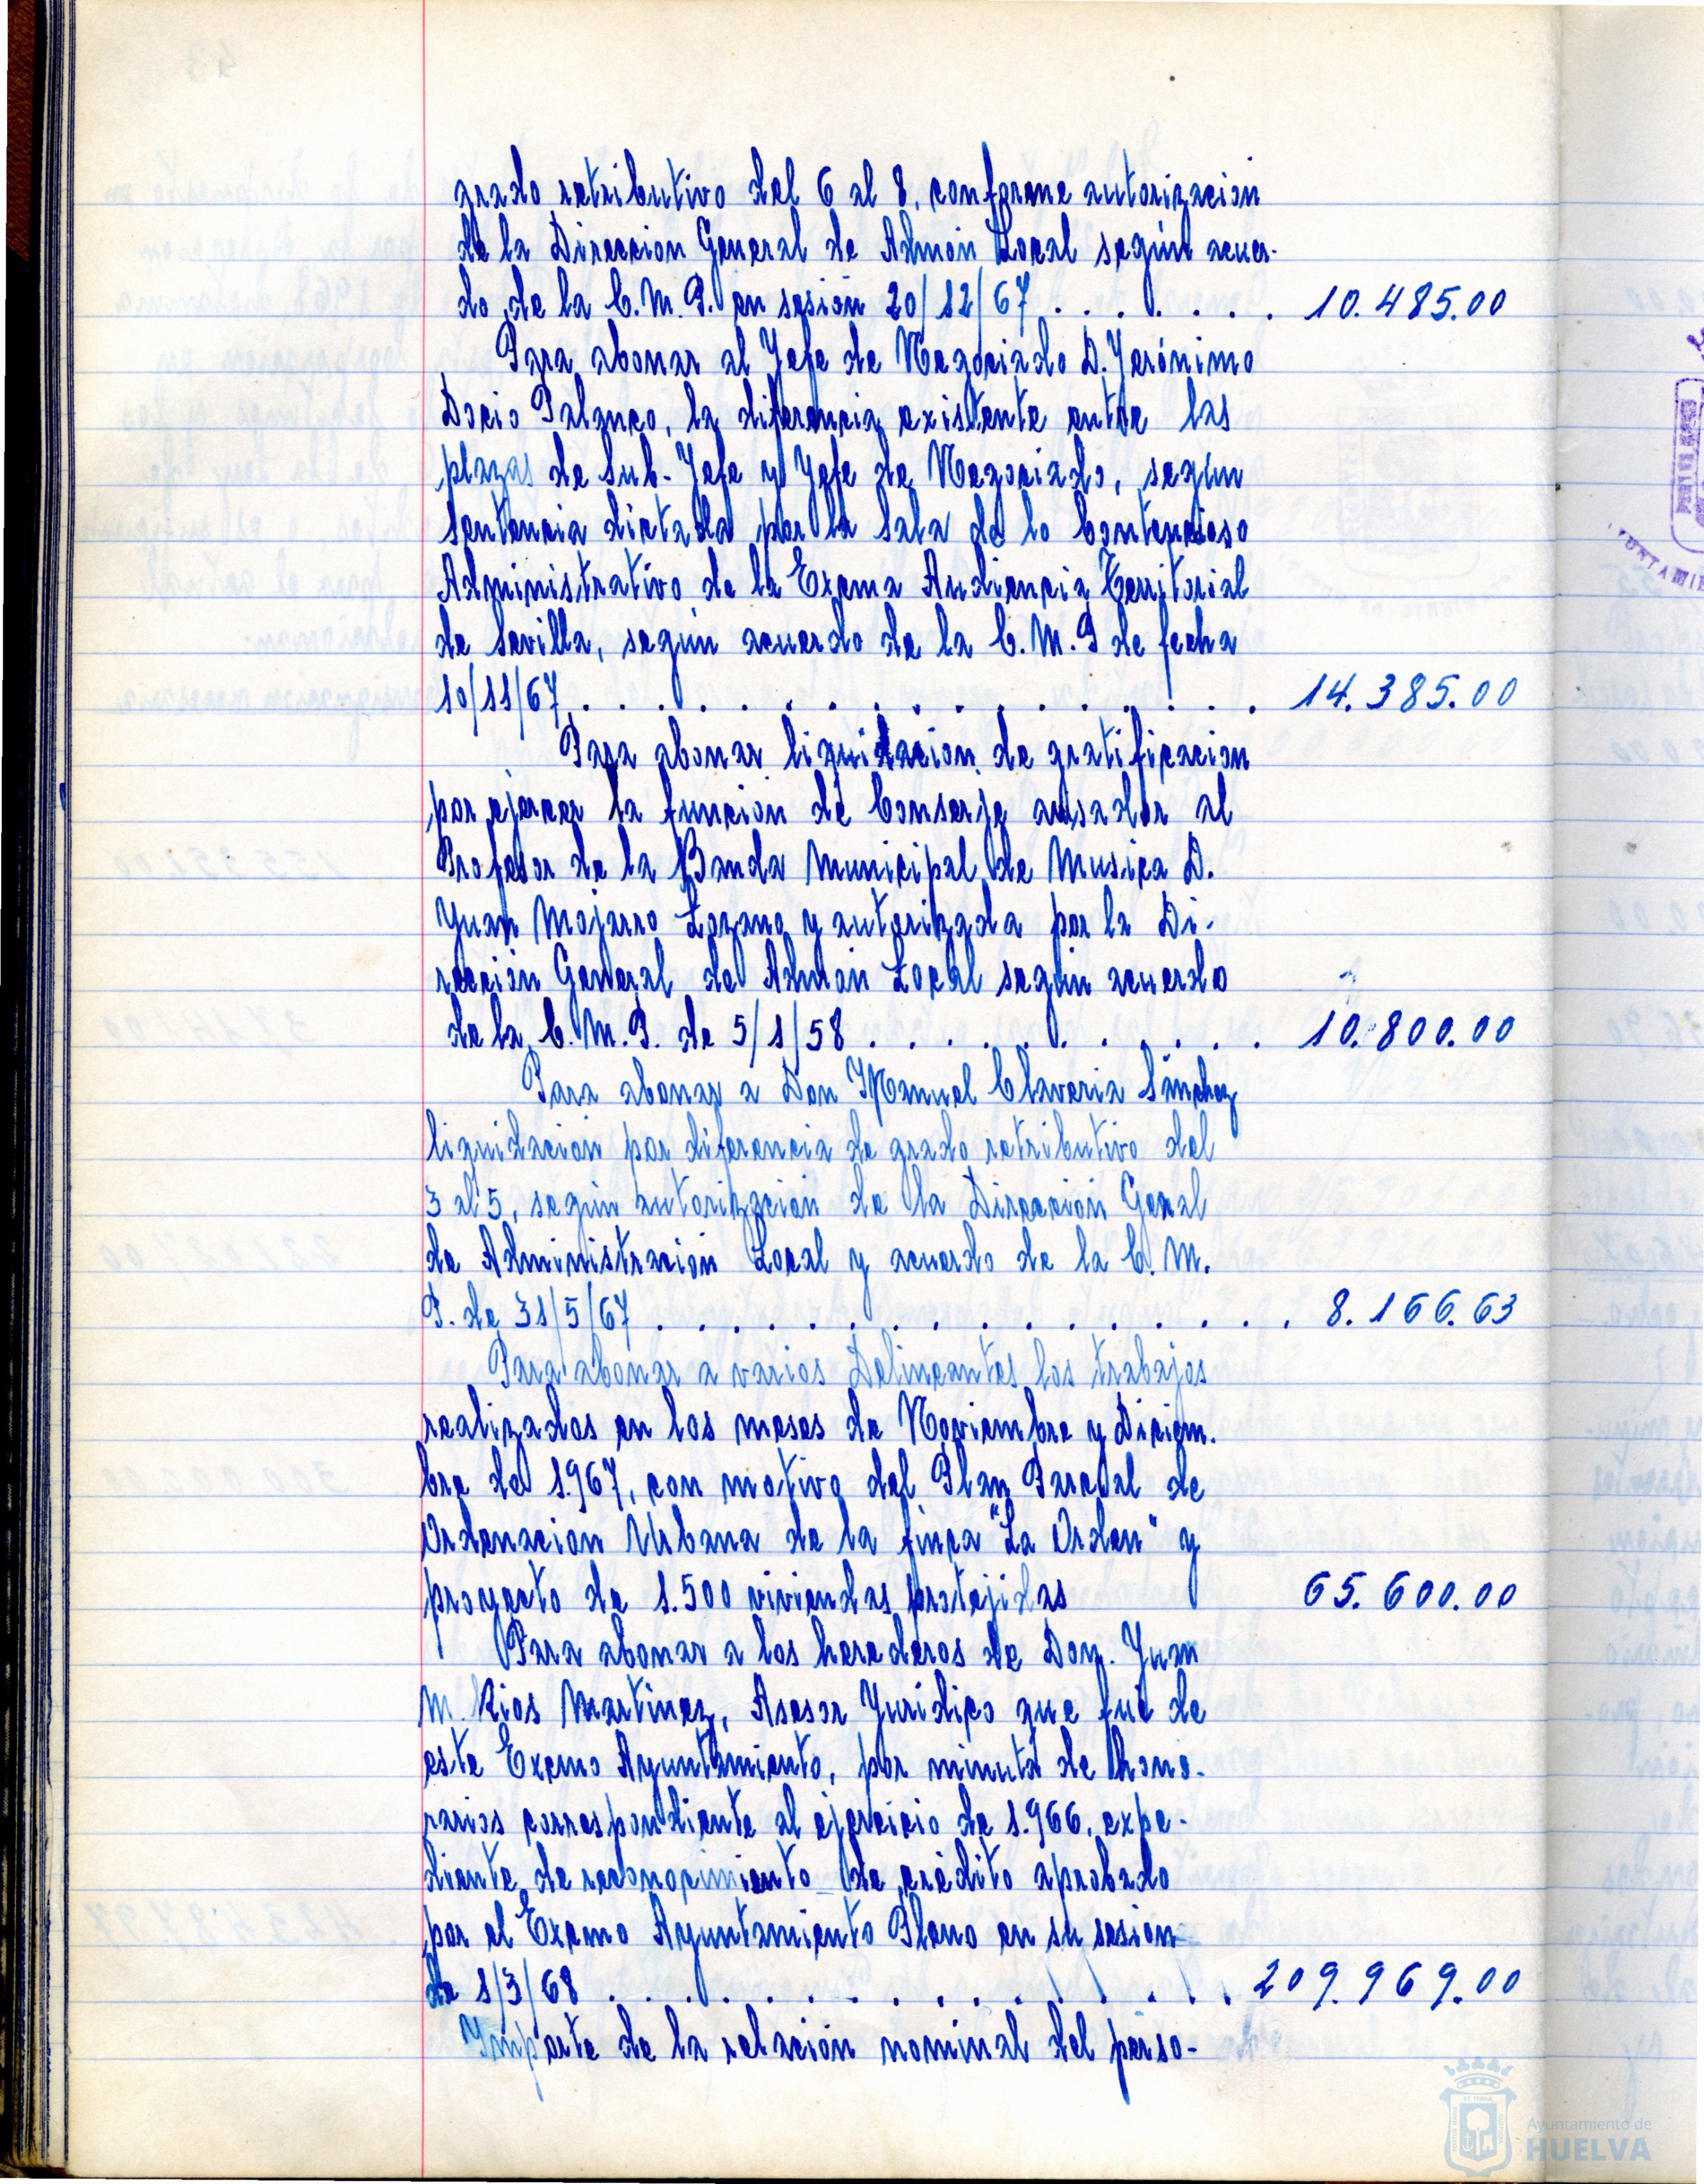 grado retributivo del 6 al 8, conforme autorizacion
de la Direccion General de Admón Local según acuer-
do de la C.M.P. en sesión 20/12/67 . . . . . . . 10.485.00
Para abonar al Jefe de Negociado D. Jerónimo
Docio Palanco, la diferencia existente entre las
plazas de Sub-Jefe y Jefe de Negociado, según
Sentencia dictada por la Sala de lo Contencioso
Administrativo de la Excma Audiencia Territorial
de Sevilla, según acuerdo de la C.M.P de fecha
10/11/67 . . . . . . . . . . . . . . . . . . 14.385.00
Para abonar liquidacion de gratificacion
por ejercer la funcion de Conserje al
Profesor de la Banda Municipal de Musica D.
Juan Mojarro Lozano y autorizada por la Di-
rección General de Admón Local según acuerdo
de la C.M.P. de 5/1/58 . . . . . . . . . . 10.800.00
Para abonar a Don Manuel Claveria Sánchez
liquidacion por diferencia de grado retributivo del
3 al 5, según autorización de la Dirección Genal
de Administración Local y acuerdo de la C.M.
P. de 31/5/67 . . . . . . . . . . . . . . . . 8.166.63
Para abonar a varios Delineantes los trabajos
realizados en los meses de Noviembre y Diciem-
bre de 1.967, con motivo del Plan Parcial de
Ordenacion Urbana de la finca "La Orden" y
proyecto de 1.500 viviendas protejidas 65.600.00
Para abonar a los herederos de Don. Juan
M. Rios Martinez, Asesor Juridico que fué de
este Excmo Ayuntamiento, por minuta de hono-
rarios correspondiente al ejercicio de 1.966, expe-
diente de reconocimiento de crédito aprobado
por el Excmo Ayuntamiento Pleno en su sesion
de 1/3/68 . . . . . . . . . . . . . . . 209.969.00
Importe de la relación nominal del perso-
Ayuntamiento de
HUELVA